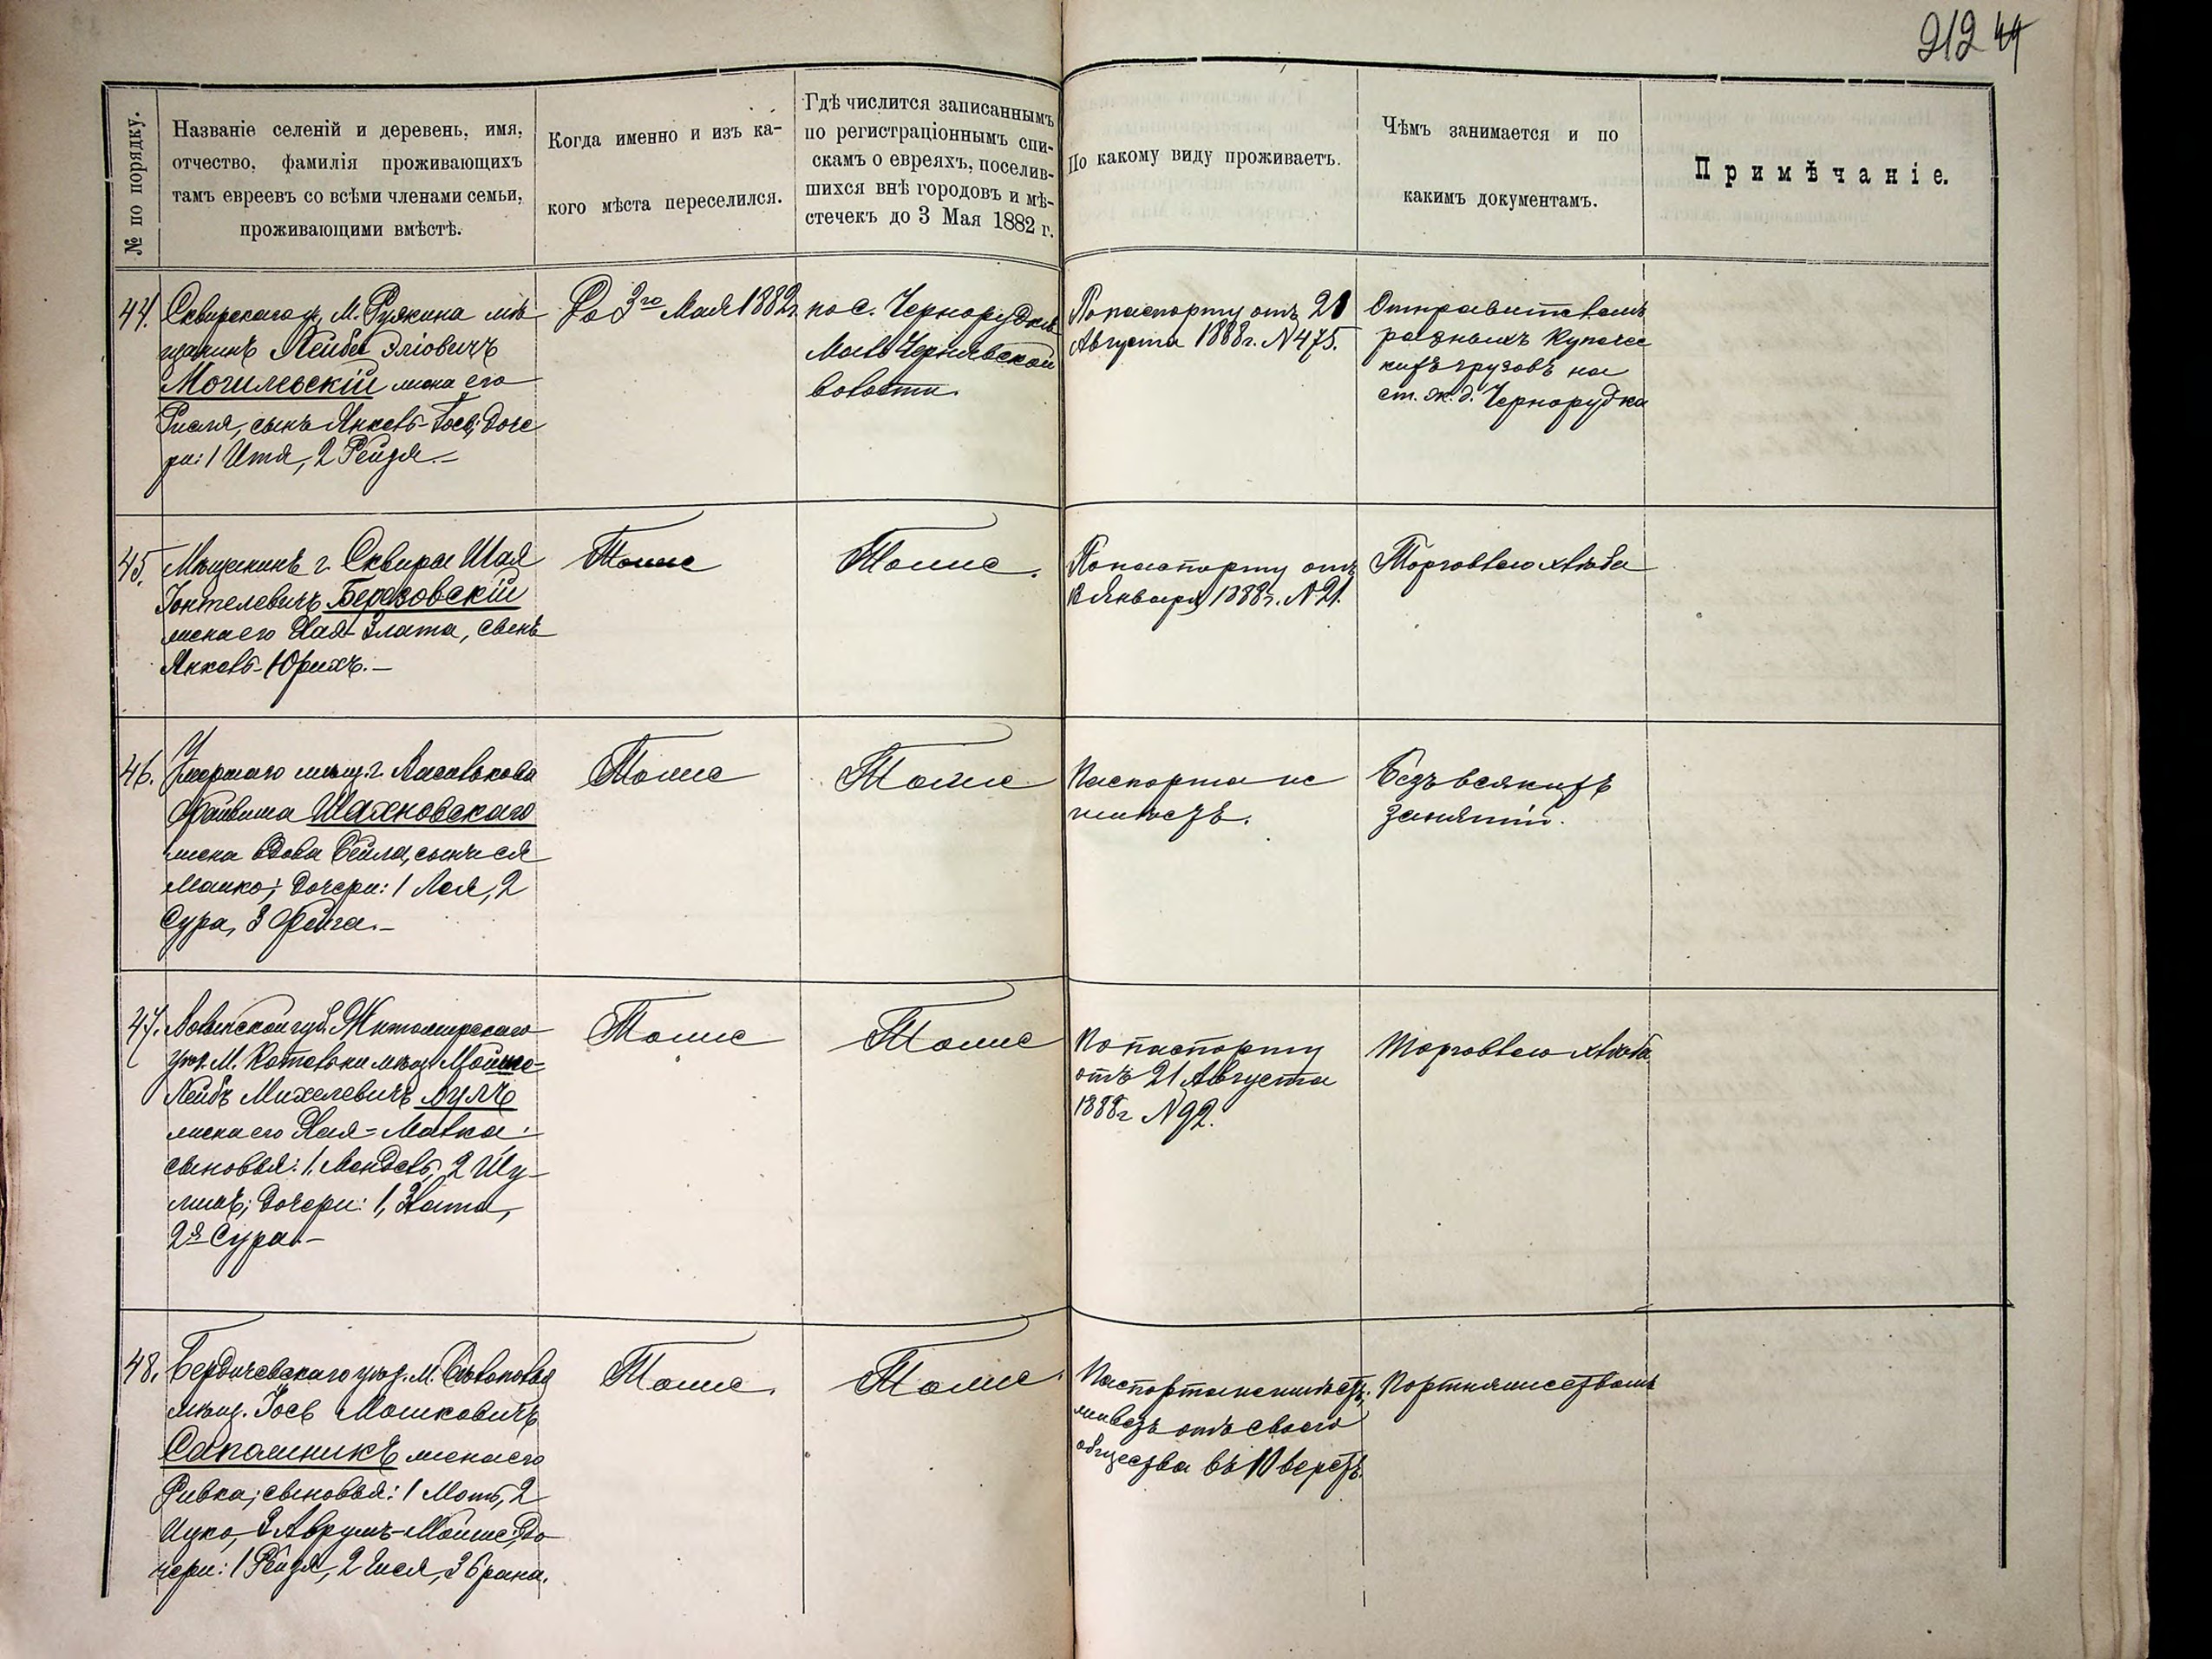 212 44
№ по порядку.
Названіе селеній и деревень, имя,
отчество, фамилія проживающихъ
тамъ евреевъ со всѣми членами семьи,
проживающими вмѣстѣ.
Когда именно и изъ ка-
кого мѣста переселился.
Гдѣ числится записаннымъ
по регистраціоннымъ спи-
скамъ о евреяхъ, поселив-
шихся внѣ городовъ и мѣ-
стечекъ до 3 Мая 1882 г.
По какому виду проживаетъ.
Чѣмъ занимается и по
какимъ документамъ.
Примѣчаніе.
44. Сквирскаго у. М. Ружина мѣ
щанинъ Лейба Эліовичъ
Могилевскій жена его
Рисля, сынъ Янкель-Іось; доче
ри: 1 Итя, 2 Рейзя.–
До 3го Мая 1882г.
по с. Чернорудкѣ
Мало Чернявской
волости.
По паспорту отъ 21
Августа 1888г. №475.
Отправительствомъ
разныхъ купечес
кихъ грузовъ на
ст. ж. д. Чернорудка
45. Мѣщанинъ г. Сквиры Шая
Іонтелевичъ Березовскій
жена его Хая-Злата, сынъ
Янкель-Юрихъ.–
Тоже
Тоже.
По паспорту отъ
12 Января 1888г. №21.
Торговлею хлѣба
46. Умершаго мѣщ. г.
Файвиша Шахновскаго
жена вдова Бейла, сынъ ея
Машко; дочери: 1 Лея, 2
Сура, 3 Фейга.–
Тоже
Тоже
Паспорта не
имѣетъ.
Безъ всякихъ
занятій.
47. Волынской губ. Житомирскаго
уѣз. М. Котельни мѣщ. Мойше=
Лейбъ Михелевичъ Пулъ
жена его Хая=Малка:
сыновья: 1, Мендель, 2 Шу-
лимъ; дочери: 1, Злата,
2я Сура.–
Тоже
Тоже
По паспорту
отъ 21 Августа
1888г №92.
Торговлею хлѣба.
48. Бердичевскаго уѣз. М. Бѣлополья
мѣщ. Іось Мошковичъ
Сапожникъ жена его
Ривка; сыновья: 1 Моть, 2
Ицко, 3 Аврумъ-Мойше; до
чери: 1 Рейзя, 2 Еня, 3 Брана.
Тоже.
Тоже.
Паспорта не имѣетъ.
живетъ отъ своего
общества въ 10 верстъ.
Портняжествомъ